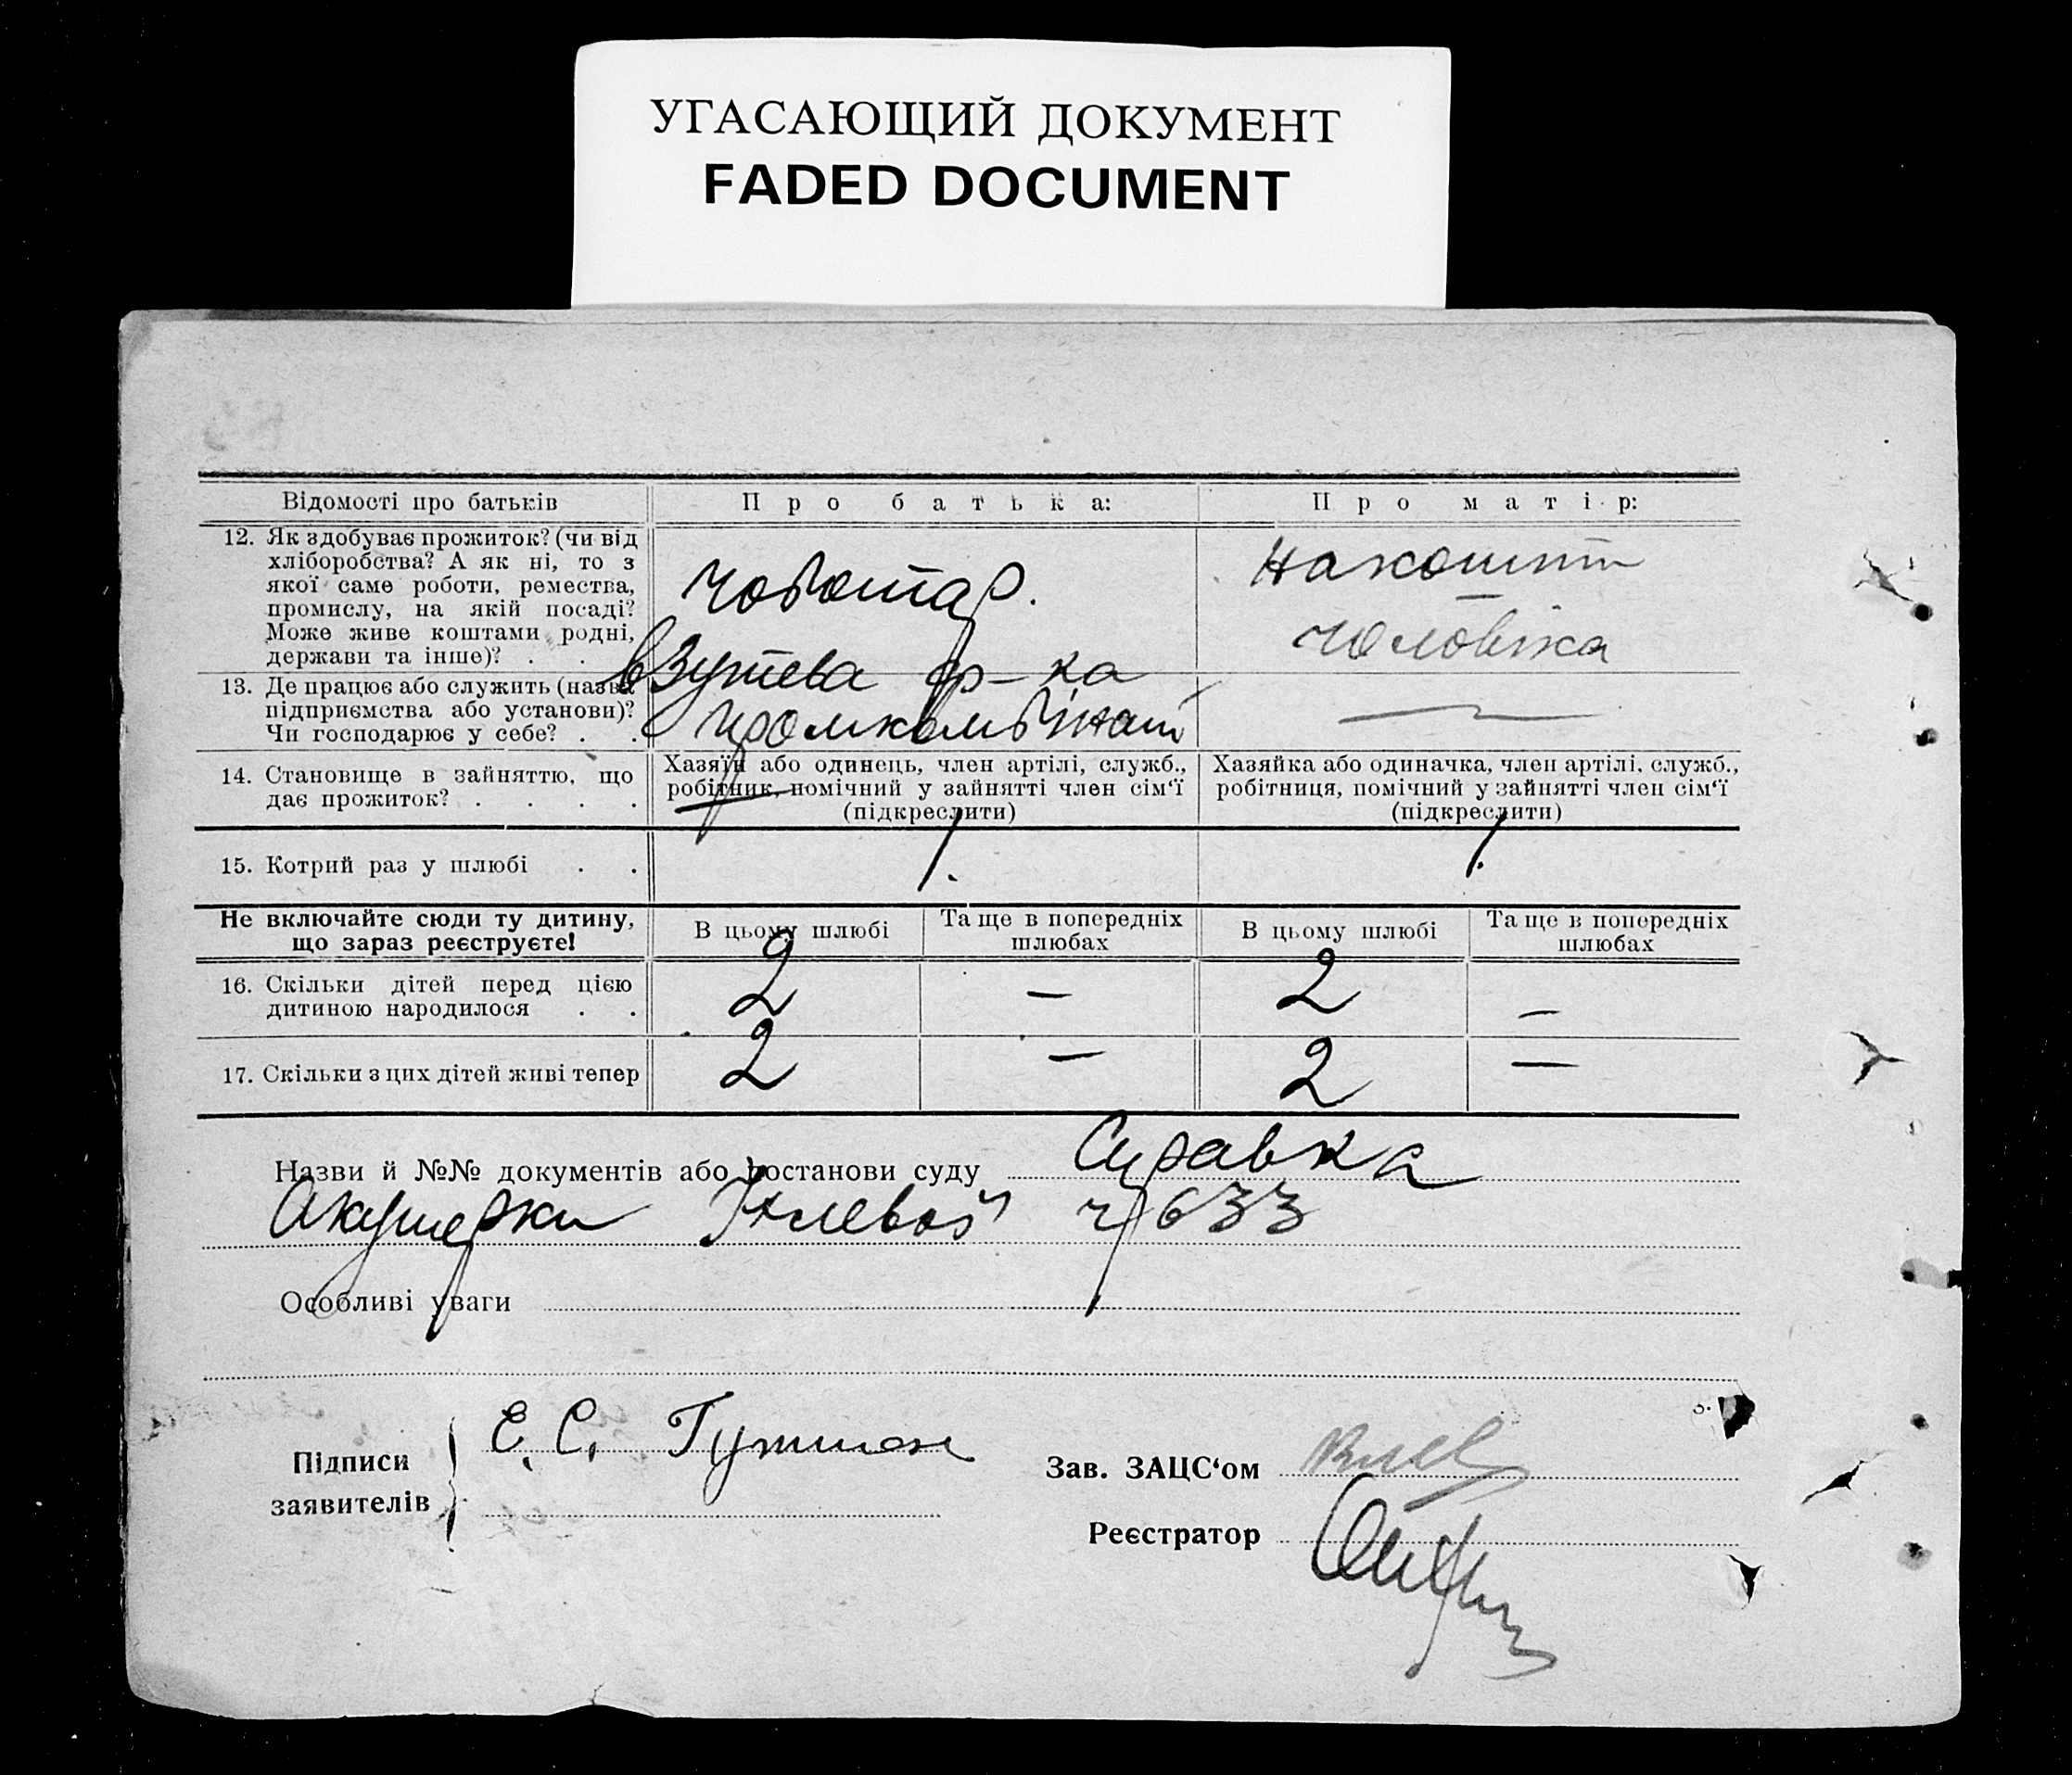 УГАСАЮЩИЙ ДОКУМЕНТ
FADED DOCUMENT
Відомості про батьків
Про батька:
Про матір:
12. Як здобуває прожиток? (чи від
хліборобства? А як ні, то з
якої саме роботи, ремества,
промислу, на якій посаді?
Може живе коштами родні,
держави та інше)? . .
Чоботар.
На кошти
чоловіка
13. Де працює або служить (назва
підприємства або установи)?
Чи господарює у себе? . .
взутева ф-ка
Промкомбінат
—
14. Становище в зайняттю, що
дає прожиток? . . . .
Хазяїн або одинець, член артілі, служб.,
робітник, помічний у зайнятті член сім‘ї
(підкреслити)
Хазяйка або одиначка, член артілі, служб.,
робітниця, помічний у зайнятті член сім‘ї
(підкреслити)
15. Котрий раз у шлюбі . .
1.
1.
Не включайте сюди ту дитину,
що зараз реєструєте!
В цьому шлюбі
Та ще в попередніх
шлюбах
В цьому шлюбі
Та ще в попередніх
шлюбах
16. Скільки дітей перед цією
дитиною народилося . .
2
—
2
—
17. Скільки з цих дітей живі тепер
2
—
2
—
Назви й №№ документів або постанови суду Справка
Акушерки ч 633
Особливі уваги
Підписи
заявителів
Е. С. Гутман
Зав. ЗАЦС‘ом
Реєстратор